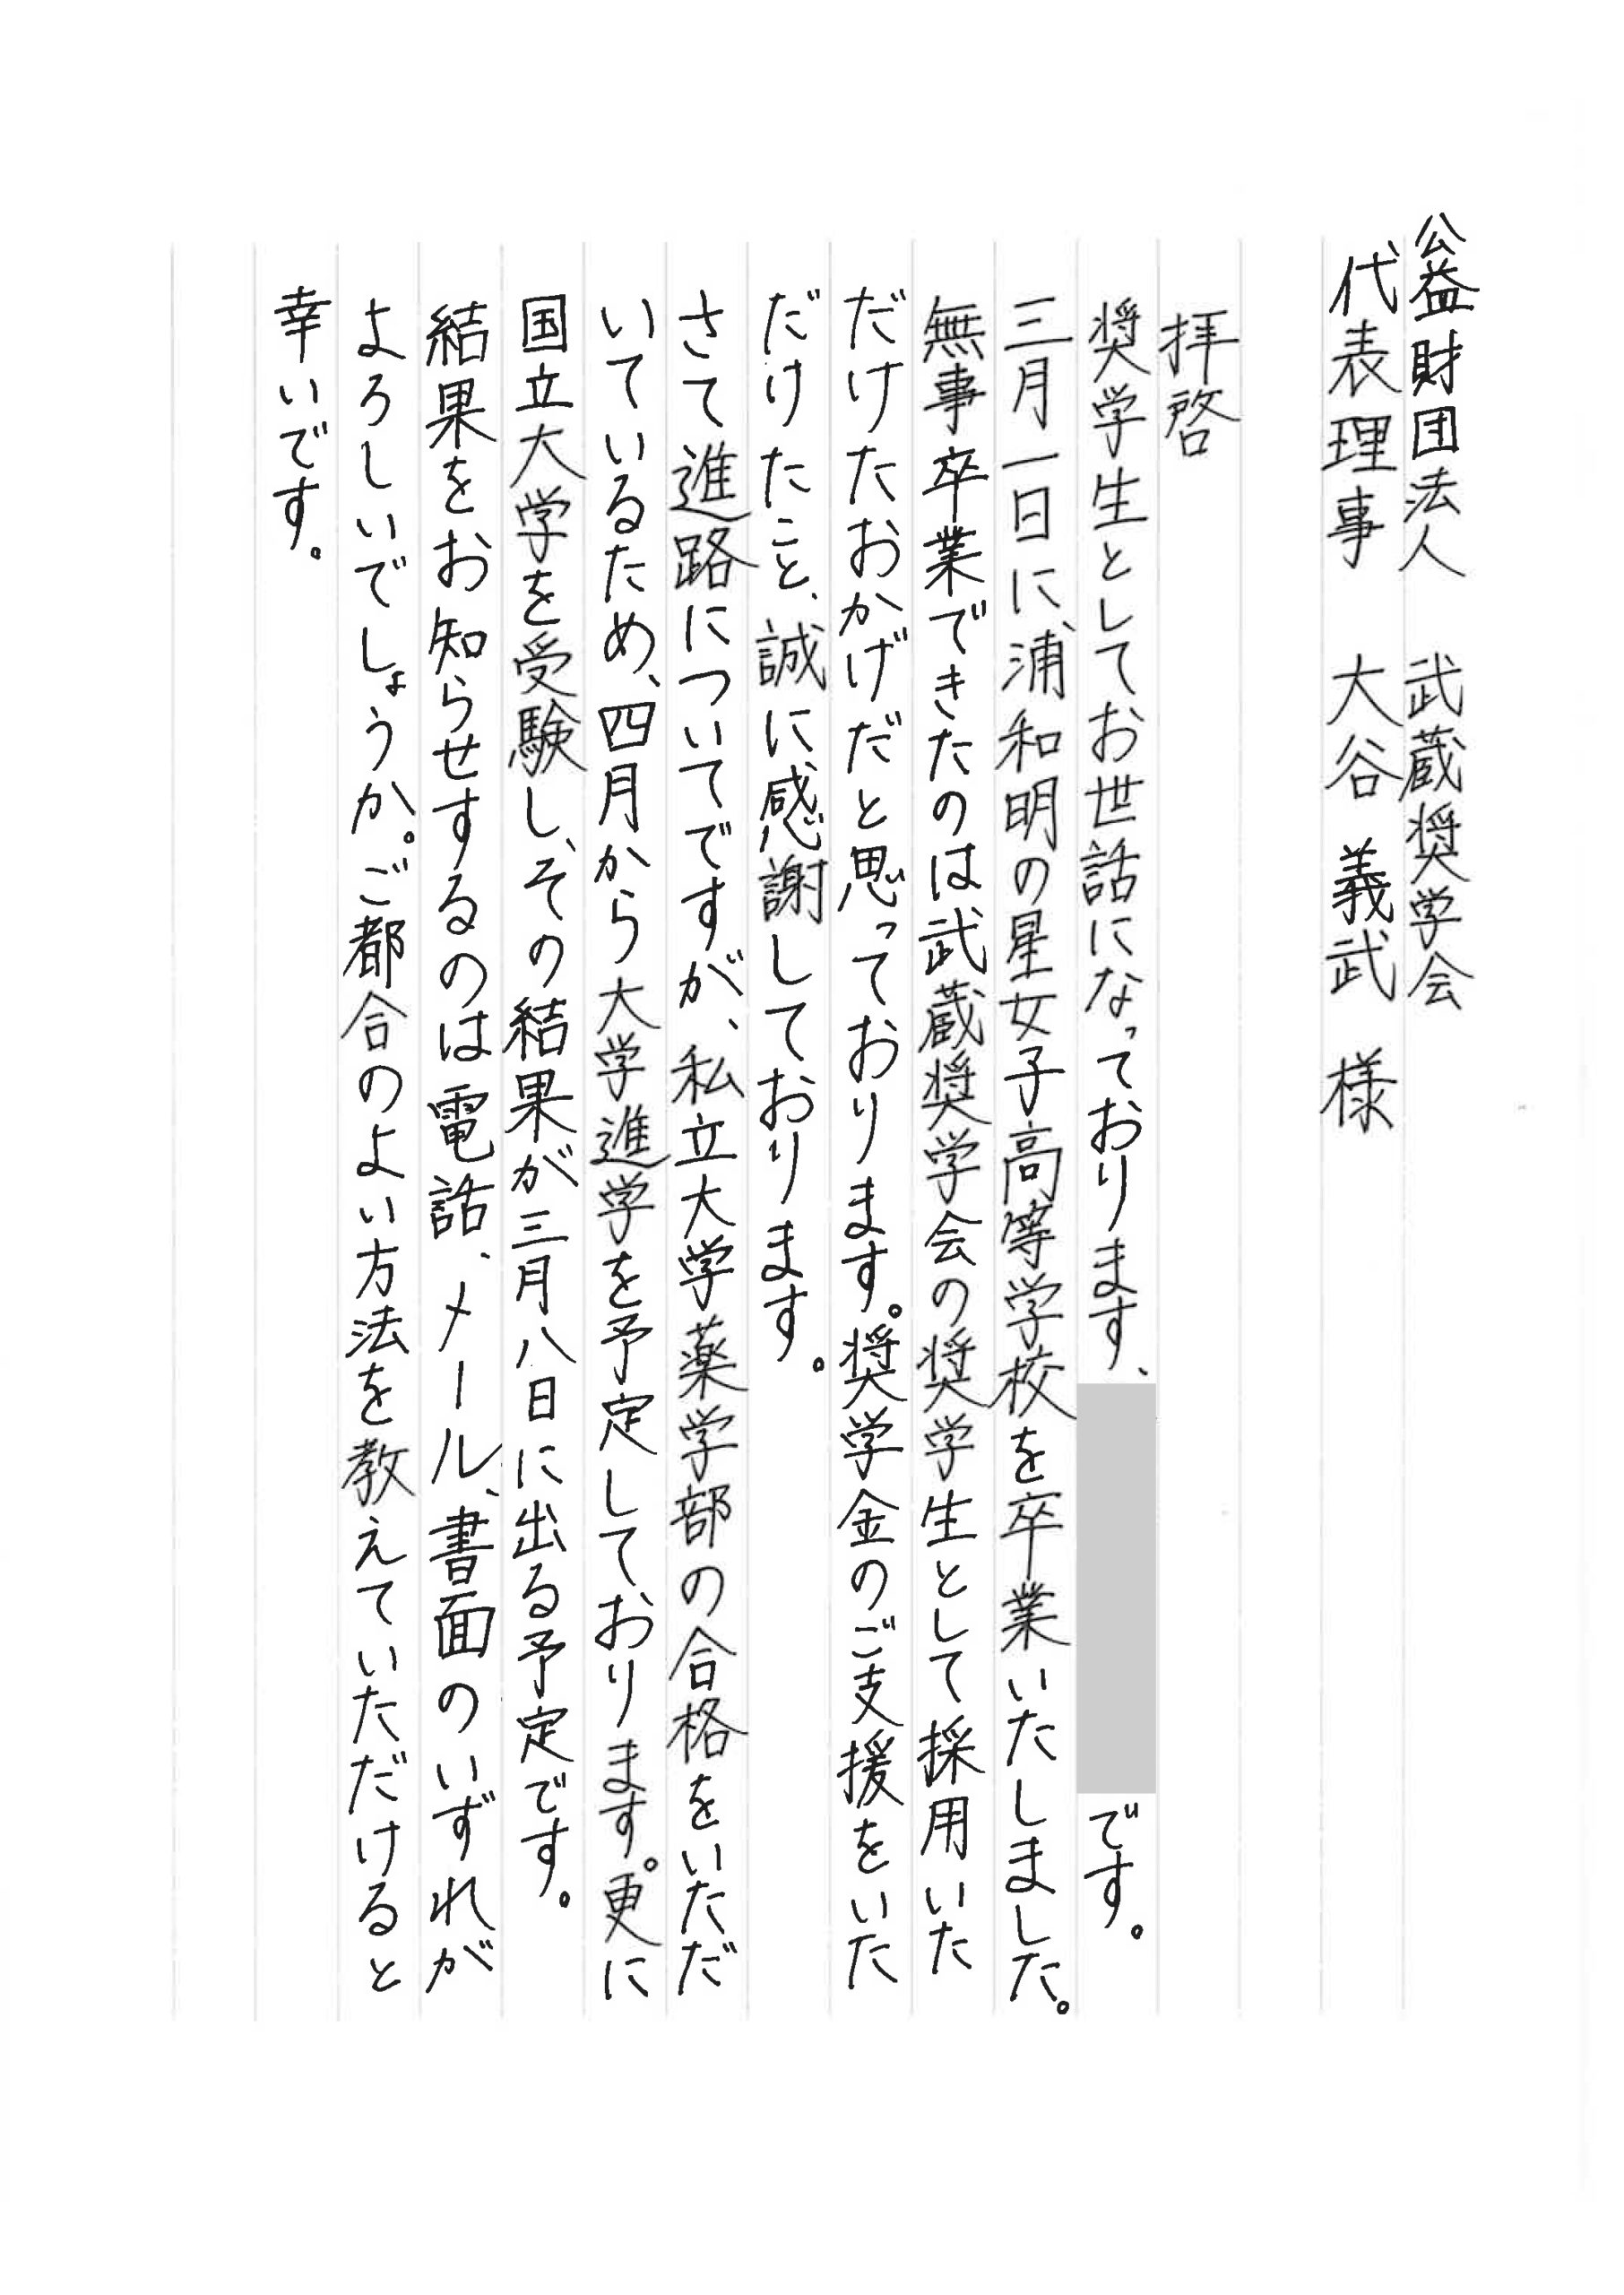 公益財団法人　武蔵奨学会
代表理事　大谷　義武　様
拝啓
奨学生としてお世話になっております、です。
三月一日に、浦和明の星女子高等学校を卒業いたしました。
無事卒業できたのは武蔵奨学会の奨学生として採用いた
だけたおかげだと思っております。奨学金のご支援をいた
だけたこと、誠に感謝しております。
さて進路についてですが、私立大学薬学部の合格をいただ
いているため、四月から大学進学を予定しております。更に
国立大学を受験し、その結果が三月八日に出る予定です。
結果をお知らせするのは電話、メール、書面のいずれが
よろしいでしょうか。ご都合のよい方法を教えていただけると
幸いです。